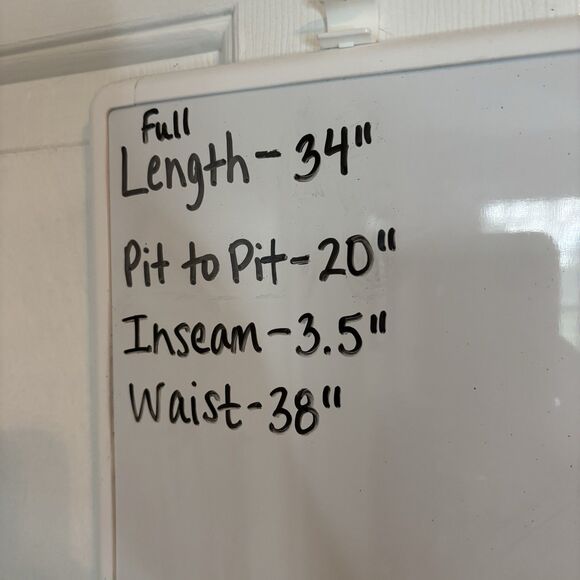 Full
Length - 34"
Pit to Pit - 20"
Inseam - 3.5"
Waist - 38"